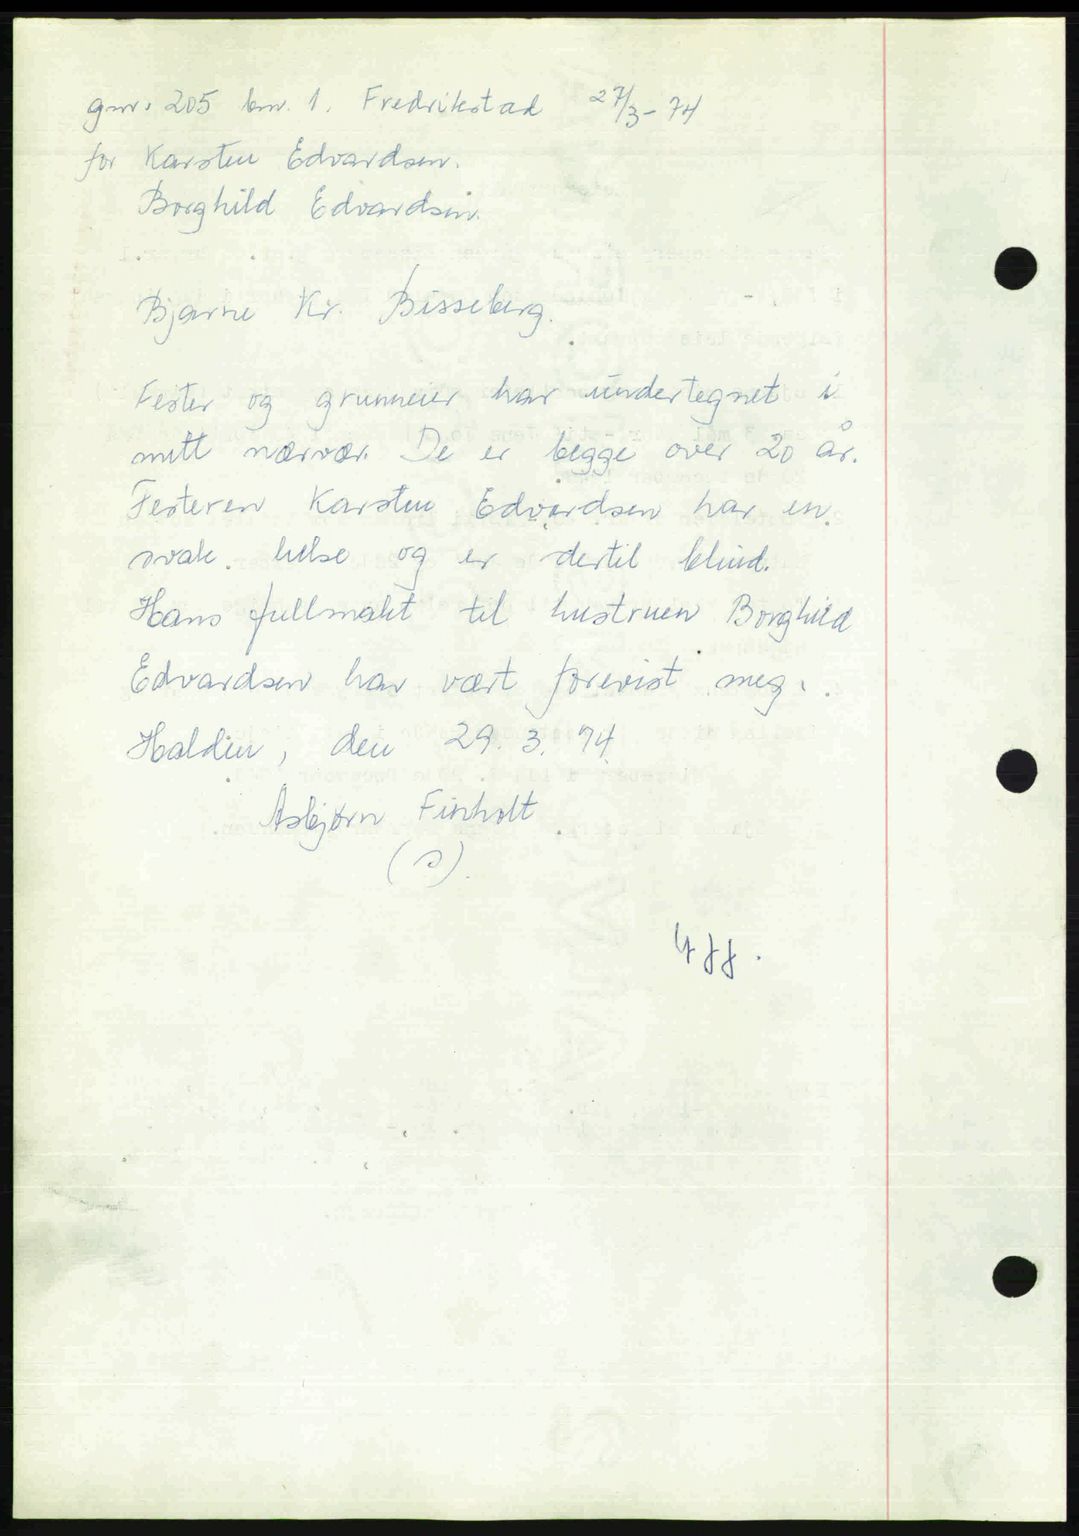 gnr. 205 bnr. 1. Fredrikstad 27/3-74
for Karsten Edvardsen.
Borghild Edvardsen.
Bjarne Kr. Bisseberg.
Fester og grunneier har undertegnet i
mitt nærvær. De er begge over 20 år.
Festeren Karsten Edvardsen har en
svak helse og er dertil blind.
Hans fullmakt til hustruen Borghild
Edvardsen har vært forevist meg.
Halden, den 29.3.74
Asbjørn Finholt
(s).